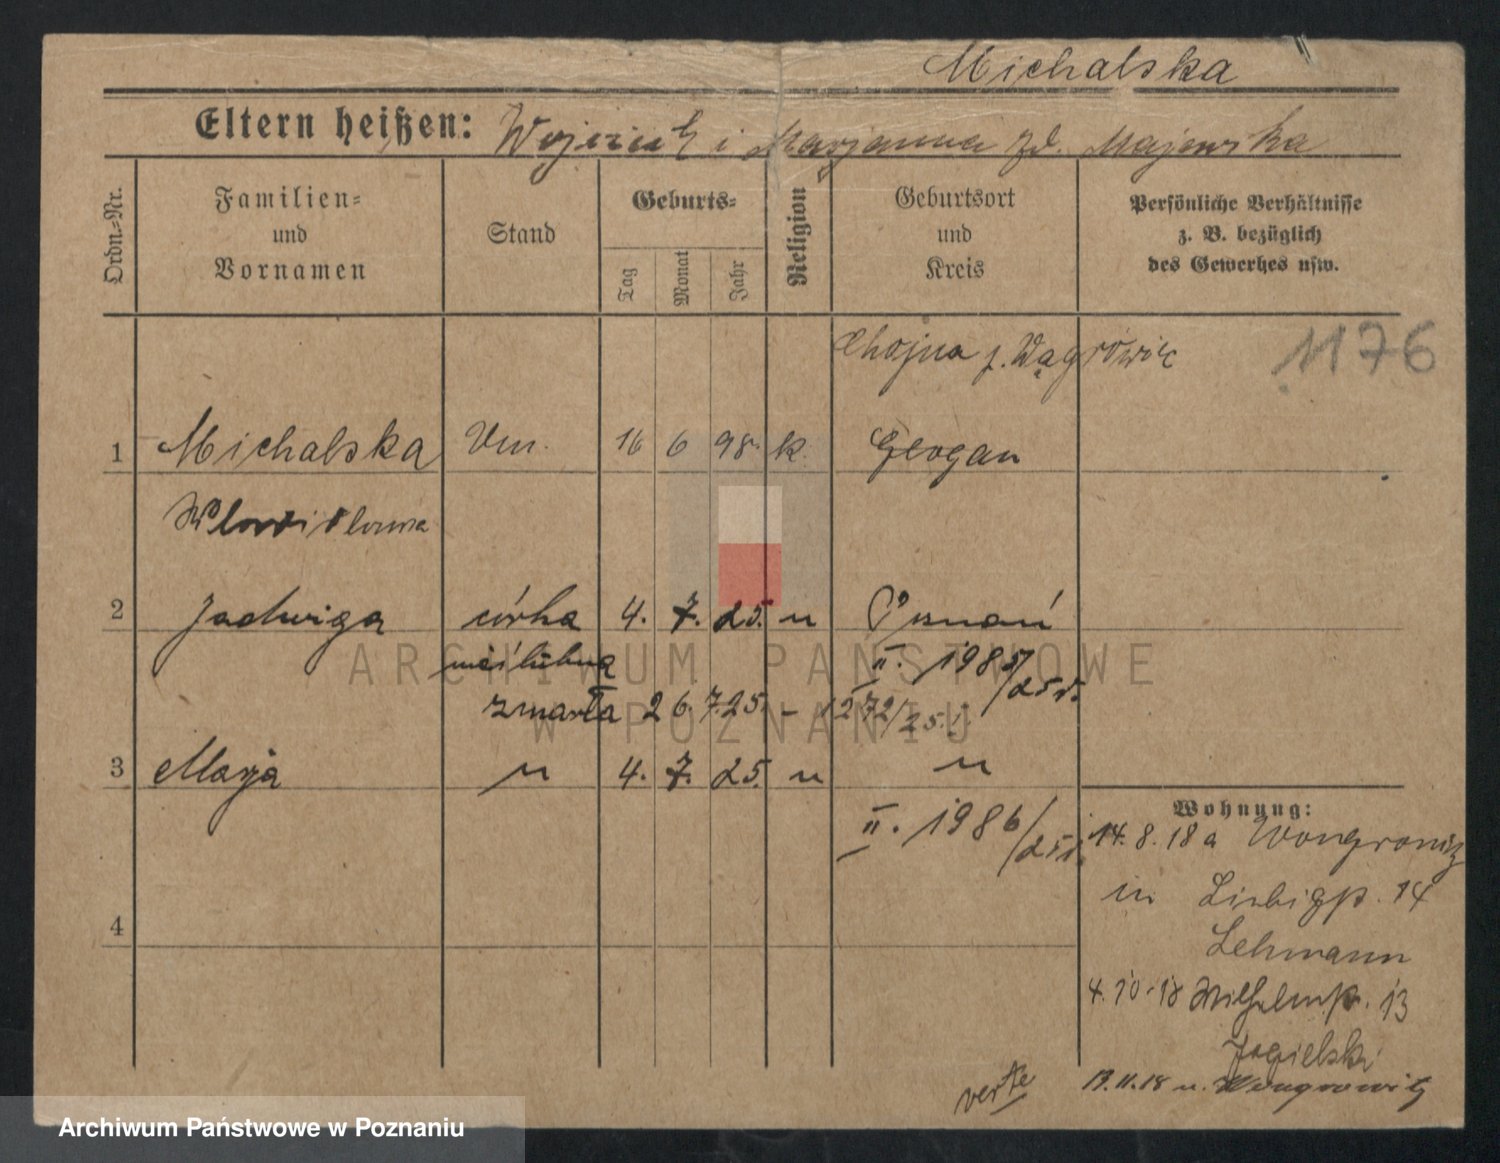 Michalska
Eltern heißen: Wojciech i Marjanna zd. Majewska
Ordn=Nr.
Familien=
und
Vornamen
Stand
Geburts=
Tag
Monat
Jahr
Religion
Geburtsort
und
Kreis
Persönliche Verhältnisse
z. B. bezüglich
des Gewerbes usw.
Chojna p. Wągrówiec
1176
1 Michalska 16 6 98. k. Glogau
2 Jadwiga córka 4. 7. 25. " Poznań
nieślubna II. 1985/25r.
zmarła 26.7.25. - 1272/25.
3 Marja " 4. 7. 25. " "
II. 1986/25
4
Wohnung:
14.8.18 a Wongrowitz
in Liebigstr. 14
Lehmann
4.10.18 Wilhelmstr. 13
Jagielski
13.11.18 n. Wongrowitz
verte
ARCHIWUM PAŃSTWOWE
W POZNANIU
Archiwum Państwowe w Poznaniu